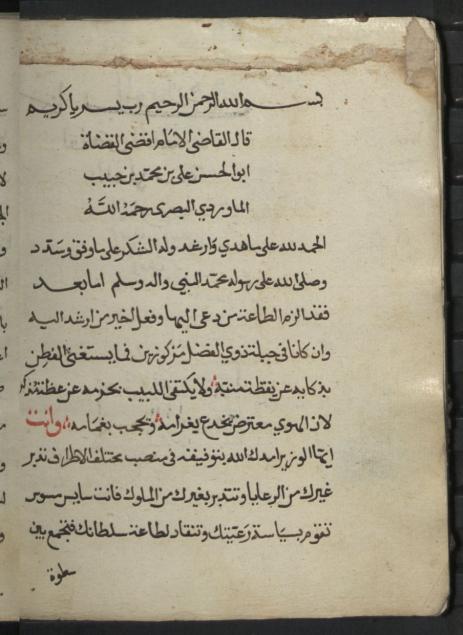 بسم الله الرحمن الرحيم رب يسر يا كريم
قال القاضي الامام اقضى القضاة
ابو الحسن علي بن محمد بن حبيب
الماوردي البصري رحمه الله
الحمد لله على ما هدي وارشد وله الشكر على ما وفق وسدد
وصلى الله على رسوله محمد النبي واله وسلم اما بعد
فقد الزم الطاعة من دعى اليها وفعل الخير من ارشد اليه
وان كانا في جبلة ذوي الفضل مركوزين فما يستغني الفطن
بذكايه عن يقظة منبه ولا يكتفي اللبيب بحزمه عن عظة مذكر
لان الهوي معترض يخدع بغرامه ويحجب بغمامه وانت
ايها الوزير امدك الله بتوفيقه في منصب مختلف الاطراف تدبر
غيرك من الرعايا وتتدبر بغيرك من الملوك فانت سايس مسوس
تقوم بسياسة رعيتك وتنقاد لطاعة سلطانك فتجمع بين
سطوة